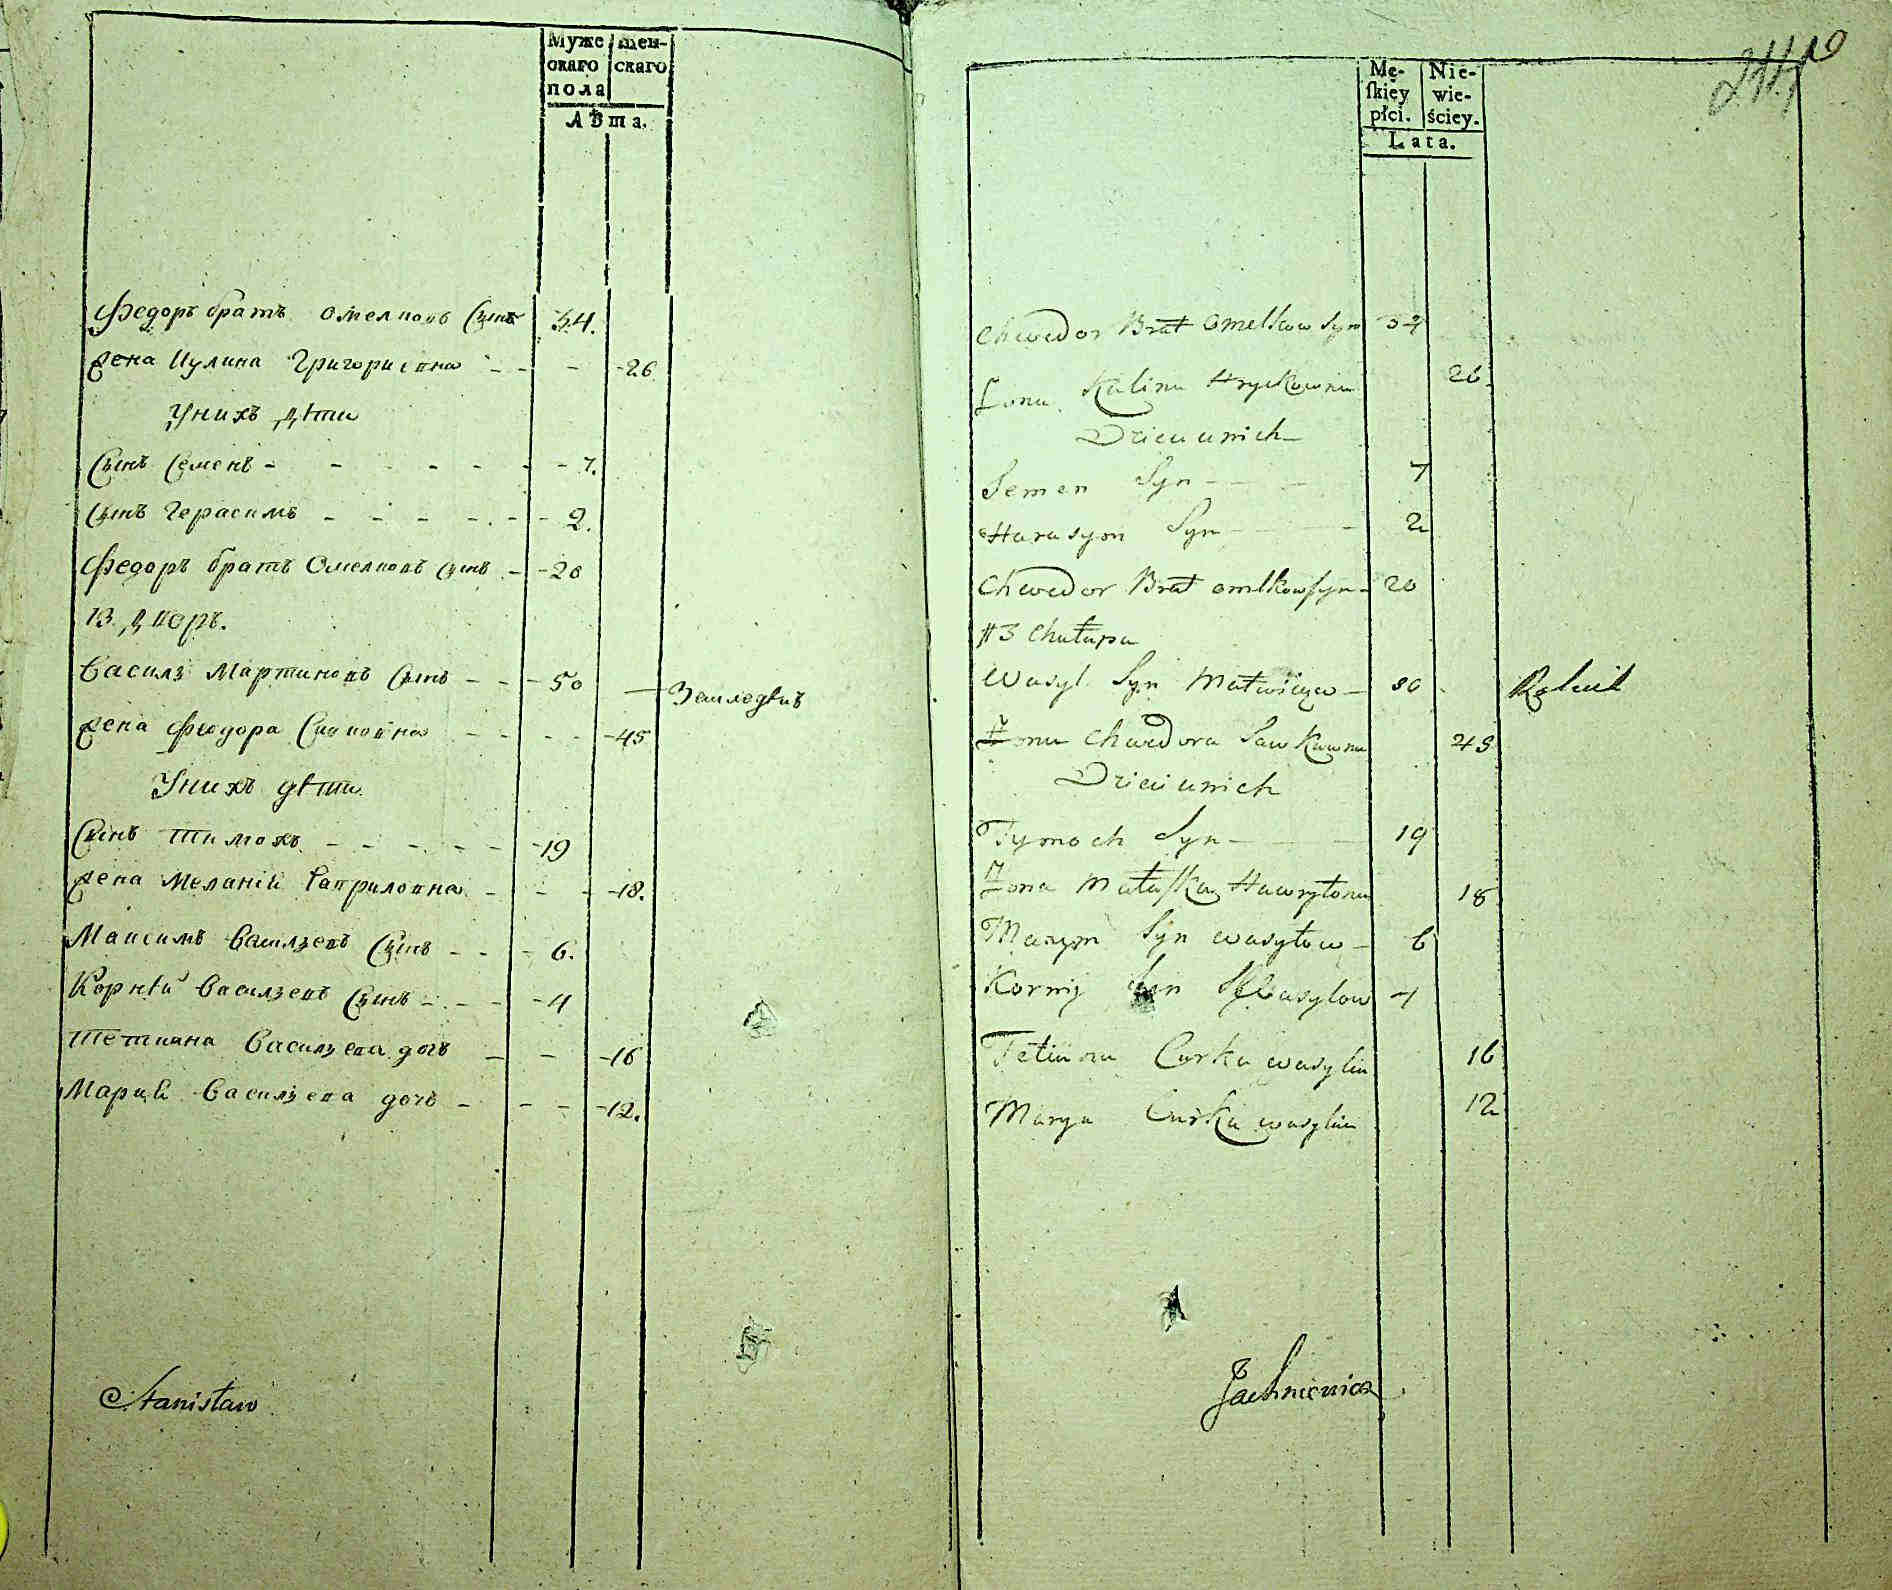 Муже
скаго
пола
жен-
скаго
Лѣта.
Федоръ братъ Омелковъ Сынъ 34.
жена Кулина Григориевна 26
Унихъ дѣти
Сынъ Семенъ 7.
Сынъ Герасимъ 2.
Федоръ братъ Омелковъ Сынъ 20
13 дворъ.
Василь Мартиновъ Сынъ 50 Земледѣлъ
жена Федора Савковна 45
Унихъ дѣти
Сынъ Тимохъ 19
жена Меланія Гавриловна 18.
Максимъ Васильевъ Сынъ 6.
Корнѣй Васильевъ Сынъ 4
Тетиана Васильева дочь 16
Мария Васильева дочь 12.
Stanisław
Mę-
skiey
płci.
Nie-
wie-
ściey.
Lata.
Chwedor Brat Omelkow Syn 34
Żona Kulina Hryckowna 26
Dzieci u nich
Semen Syn 7
Harasym Syn 2
Chwedor Brat omlkow syn 20
13 Chałupa
Wasyl Syn 50 Rolnik
Żona Chwedora Sawkowna 45
Dzieci u nich
Tymoch Syn 19
Żona Hawryłowna 18
Maxym Syn wasylow 6
Korniy Sin Wasylow 4
Tetiana Curka wasylia 16
Marya Curka wasylia 12
Jachniewicz